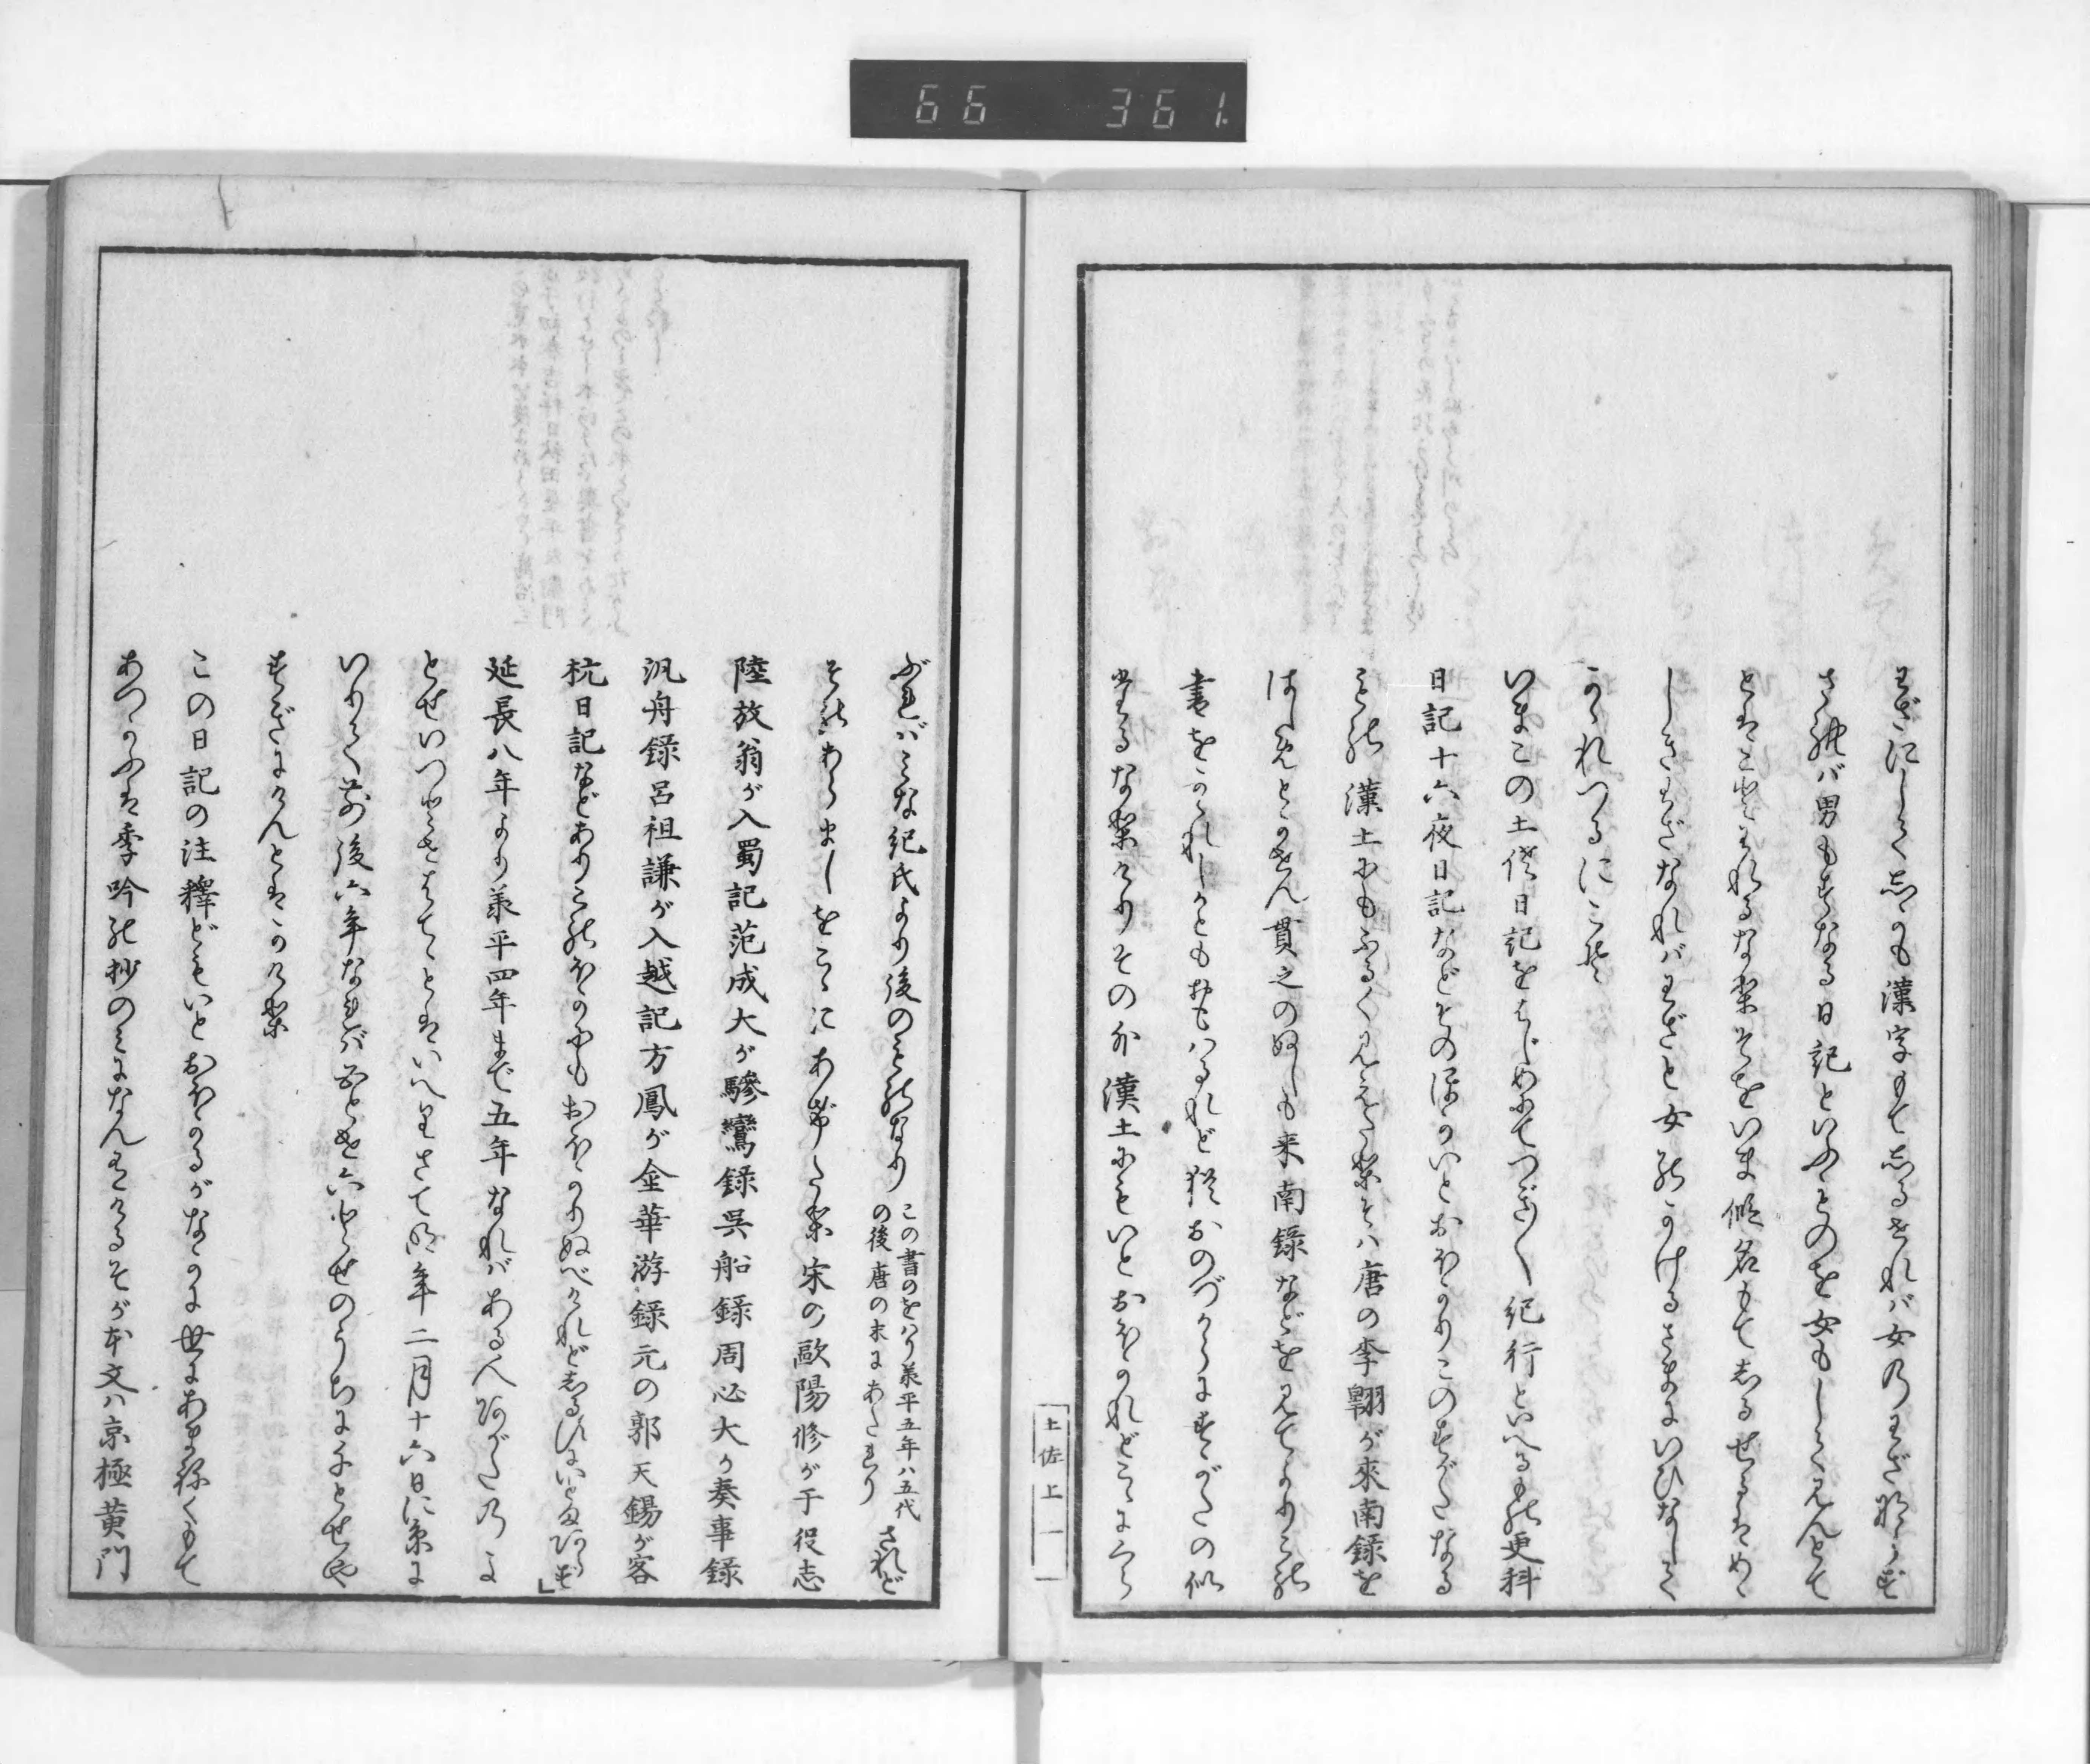 66 361.
わざにしてしかも漢字もてしるされバ女乃わざならず
されバ男もすなる日記といふものを女もしてみんとて
とはことわれるなりそをいま假名もてしるせるはめゝ
しきわざなれバわざと女のかけるさまにいひなして
かゝれつるにこそ
いまこの土佐日記をはじめにてつぎ〳〵紀行といへるもの更科
日記十六夜日記などそのほかいとおほかりこのすがたなる
もの漢土にもふるくみえたりそハ唐の李翺が來南録を
はじめとかせん貫之のぬしも来南録などをみてよりこの
書をかゝれしかともおもハるれど猶おのづからにすがたの似
たるなりけりその外漢土にもいとおほかれどこゝにいら
土佐上 一
ぶればみな紀氏より後のものなり
この書のをハり承平五年ハ五代
の後唐の末にあたれり
されど
そのあらましをこゝにあげたり宋の歐陽修が于役志
陸放翁が入蜀記范成大が驂鸞録呉船録周必大が奏事録
汎舟録呂祖謙が入越記方鳳が金華游録元の郭天錫が客
杭日記などありこのほかにもおほかりぬべけれどしるさんはいとまあらず
延長八年より承平四年まで五年なれバある人あがたのよ
とせいつとせはてゝとはいへりさて明年二月十六日に京に
いりて前後六年なればいつとせ六とせのうちに千とせや
すぎにけんとはかけり
この日記の注釋どもいとおほかるがなかに世にあまねくもて
あつかふは季吟の抄のみになんありけるそが本文ハ京極黄門